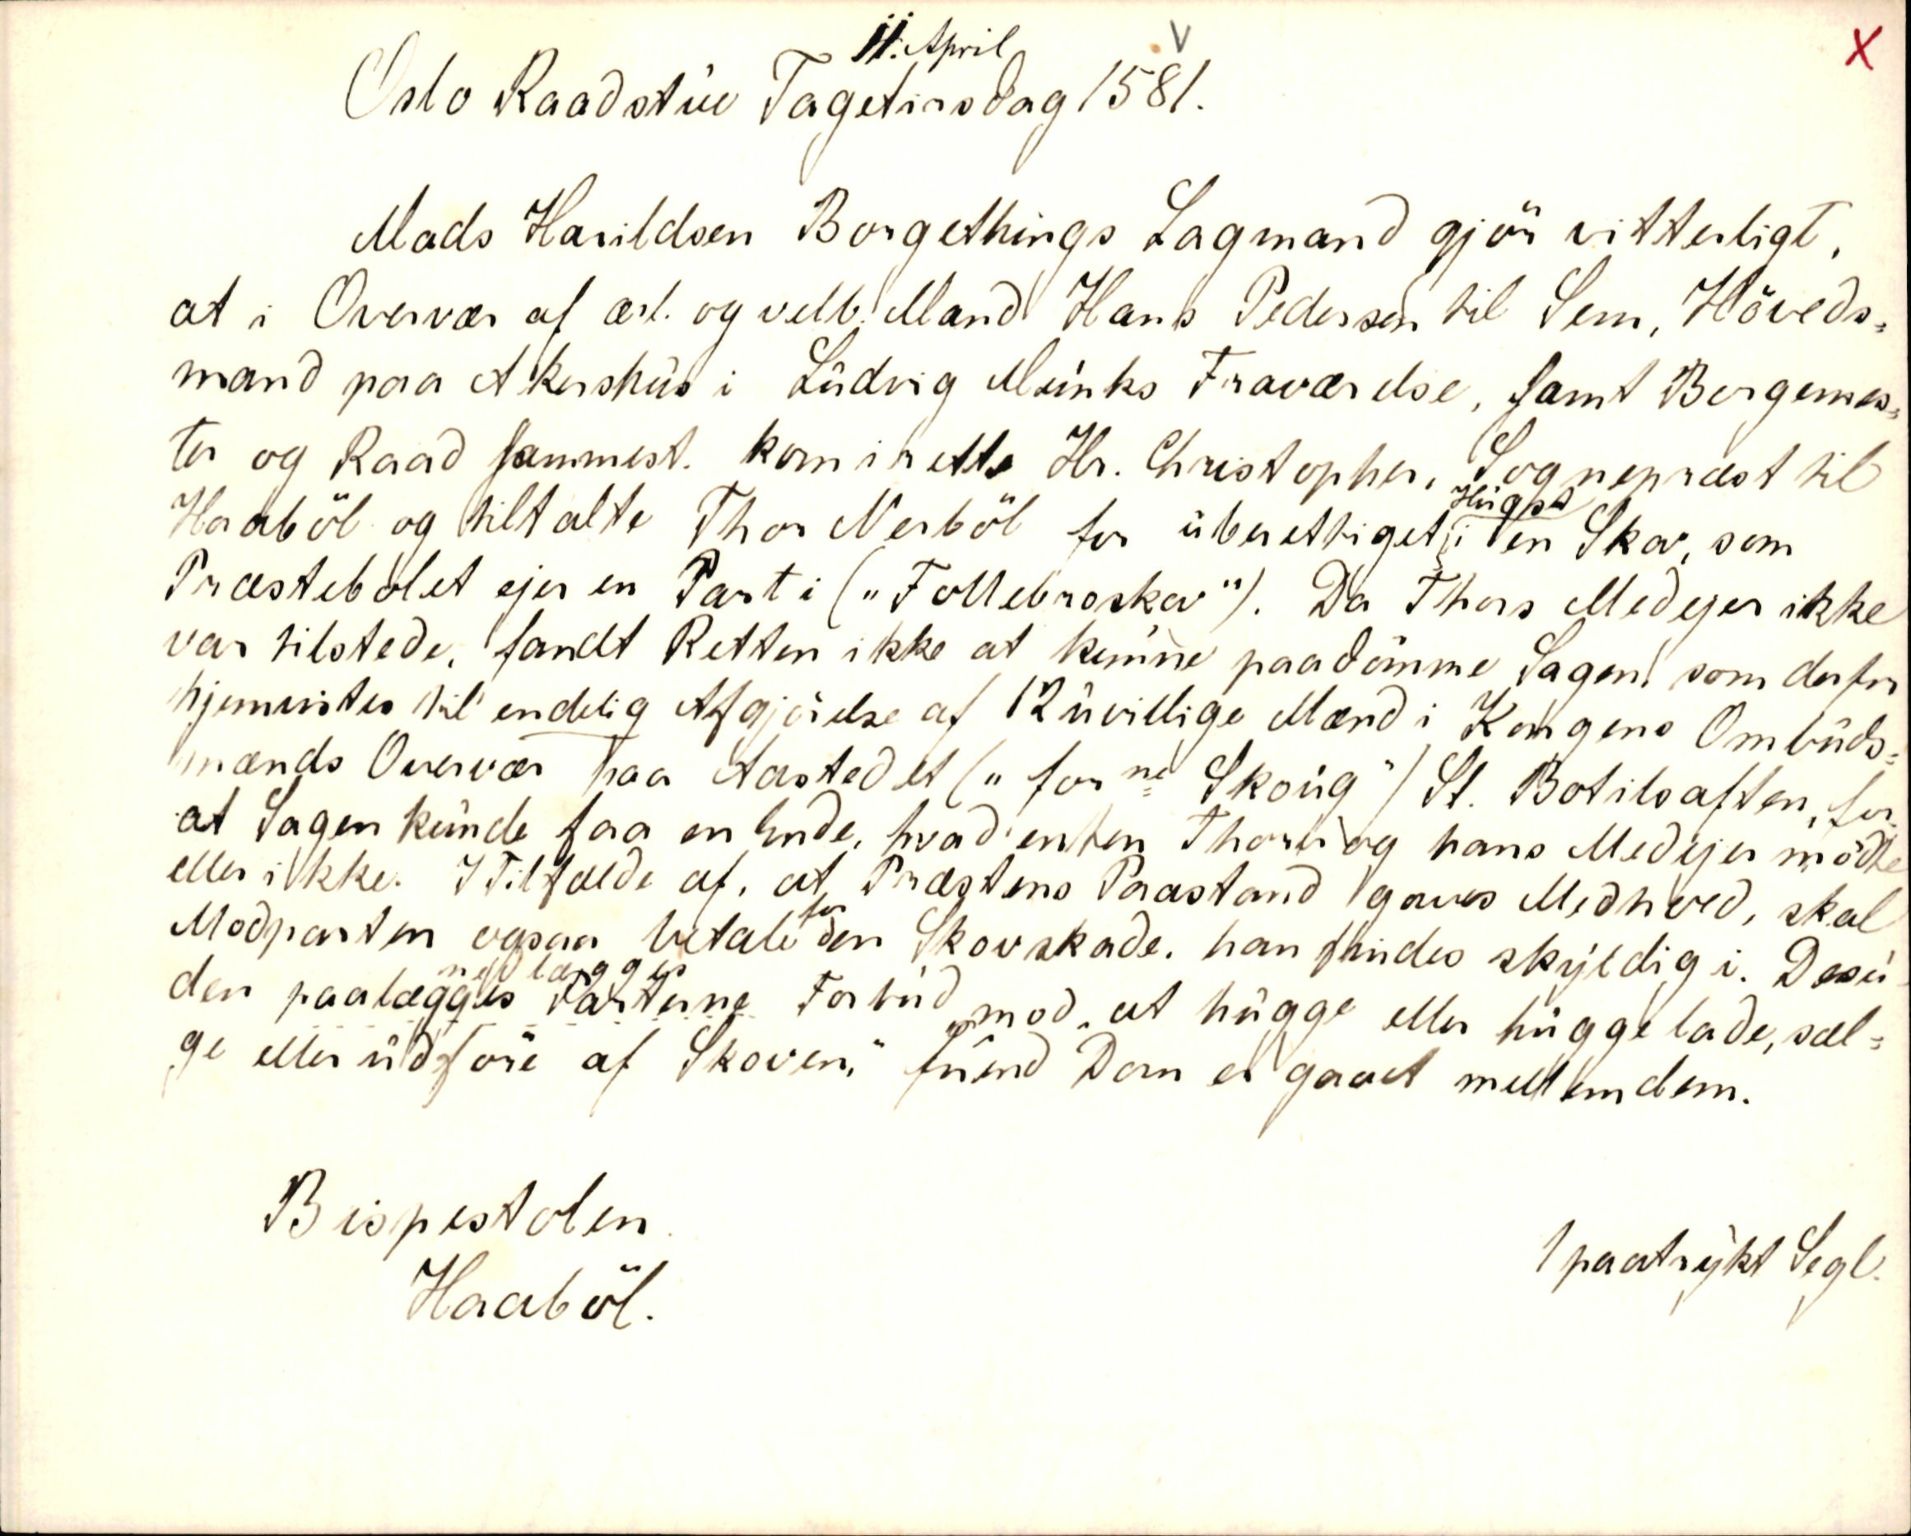 11. April
Oslo Raadstue Tagetirsdag 1581.
Mads Harildsen Borgethings Lagmand gjör vitterligt,
at i Overvær af ærl. og velb. Mand Hans Pedersen til Sem, Höveds=
mand paa Akershus i Ludvig Munks Fraværelse, samt Borgemes=
ter og Raad sammest. kom i rette Hr. Christopher, Sognepræst til
Haaböl og tiltalte Thor Nerböl for uberettiget Hugst i en Skov, som
Præstebolet ejer en Part i („Follebroskov“). Da Thors Medejer ikke
var tilstede, fandt Retten ikke at kunne paadömme Sagen, som derfor
hjemvistes til endelig Afgjörelse af 12 uvillige Mænd i Kongens Ombuds=
mænds Overvær paa Aastedet („for ne Skoug“) St. Botilsaften, for
at Sagen kunde faa en Ende, hvad enten Thor og hans Medejer mödte
eller ikke. I Tilfælde af, at Præstens Paastand gaves Medhold, skal
Modparten ogsaa betale for den Skovskade, han findes skyldig i. Desu
den paalægges nedlægges Parterne Forbud mod „at hugge eller hugge lade, sæl=
ge eller udföre af Skoven,“ förend Dom er gaaet mellem dem.
Bispestolen
Haaböl.
1 paatrykt Segl.